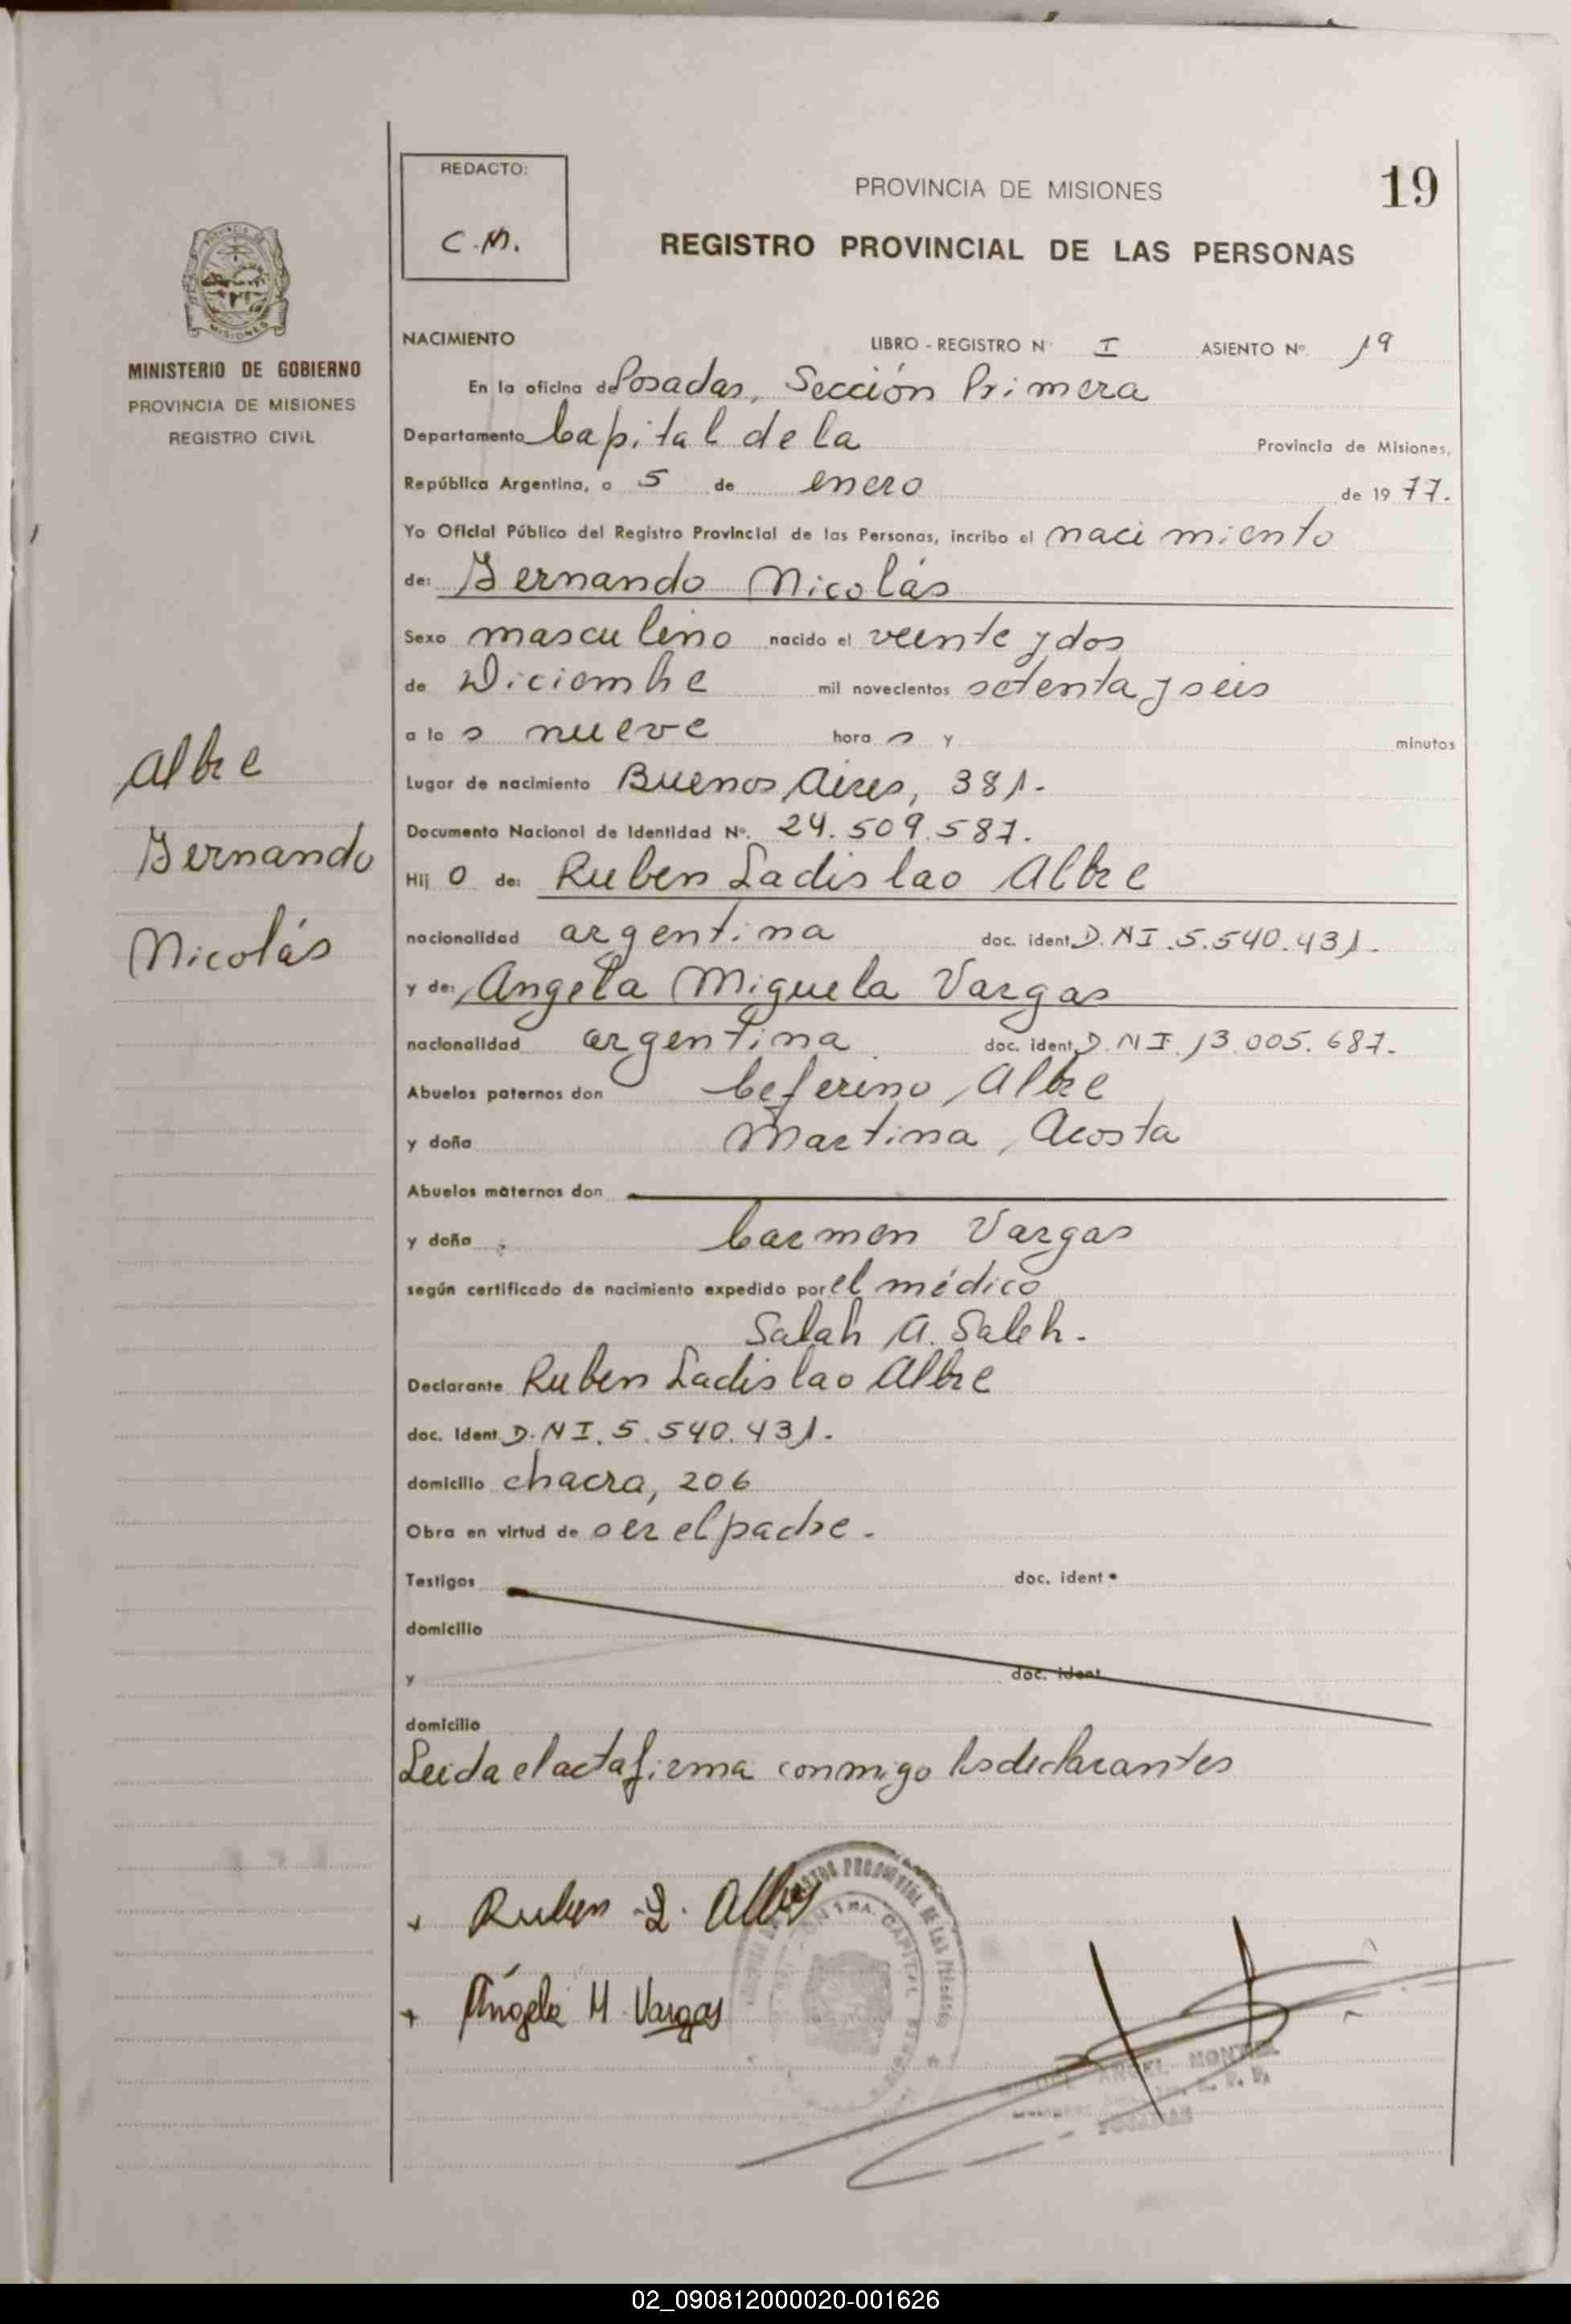 REDACTO:
C.M.
PROVINCIA DE MISIONES
19
REGISTRO PROVINCIAL DE LAS PERSONAS
MISIONES
MINISTERIO DE GOBIERNO
PROVINCIA DE MISIONES
REGISTRO CIVIL
NACIMIENTO LIBRO - REGISTRO Nº I ASIENTO Nº 19
En la oficina de Posadas, Sección Primera
Departamento Capital de la Provincia de Misiones,
República Argentina, a 5 de enero de 1977.
Yo Oficial Público del Registro Provincial de las Personas, incribo el nacimiento
de: Fernando Nicolás
Sexo masculino nacido el veinte y dos
de Diciembre mil novecientos setenta y seis
a la s nueve hora s y minutos
Lugar de nacimiento Buenos Aires, 381.
Documento Nacional de Identidad Nº. 24.509.587.
Hij o de: Ruben Ladislao Albre
nacionalidad argentina doc. ident. D.N.I. 5.540.431.
y de: Angela Miguela Vargas
nacionalidad argentina doc. ident. D.N.I. 13.005.687.
Abuelos paternos don Ceferino, Albre
y doña Martina, Acosta
Abuelos maternos don
y doña Carmen Vargas
según certificado de nacimiento expedido por el médico
Salah A. Saleh.
Declarante Ruben Ladislao Albre
doc. Ident. D.N.I. 5.540.431.
domicilio chacra, 206
Obra en virtud de ser el padre.
Testigos doc. ident
domicilio
y doc. ident
domicilio
Leida el acta firma conmigo los declarantes
Albre
Fernando
Nicolás
Ruben L. Albre
Ángela M. Vargas
REGISTRO PROVINCIAL DE LAS PERSONAS
CAPITAL
ANGEL
02_090812000020-001626